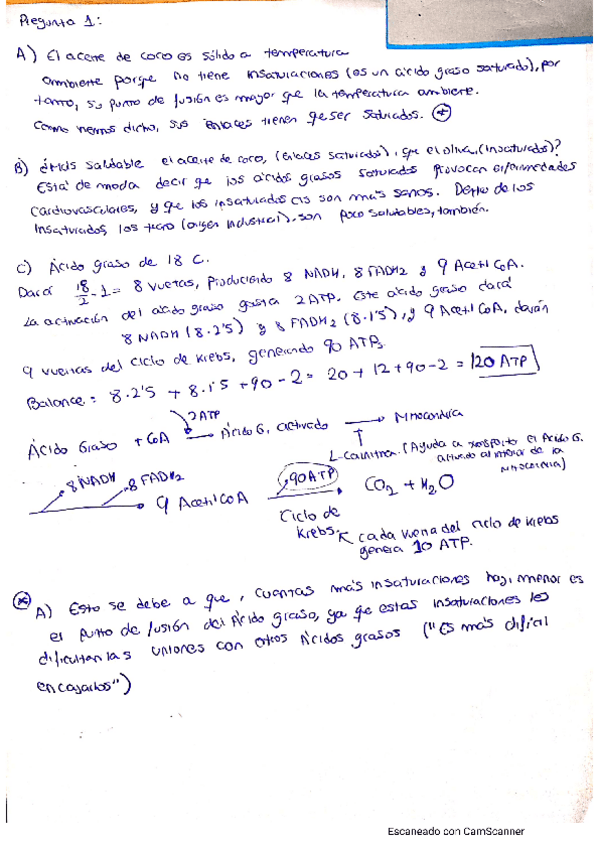 Pregunta 1:
A) El aceite de coco es sólido a temperatura
ambiente porque no tiene insaturaciones (es un ácido graso saturado), por
tanto, su punto de fusión es mayor que la temperatura ambiente.
Como hemos dicho, sus enlaces tienen qe ser saturados. (*)
B) ¿Más saludable el aceite de coco, (enlaces saturados), que el oliva, (insaturados)?
Está de moda decir qe los ácidos grasos saturados provocan enfermedades
cardiovasculares, y que los insaturados cis son más sanos. Dentro de los
insaturados, los trans (origen industrial), son poco saludables, también.
C) Ácido graso de 18 C.
Dará 18/2 - 1 = 8 vueltas, produciendo 8 NADH, 8 FADH2 y 9 Acetil CoA.
La activación del ácido graso gasta 2 ATP. Este ácido graso dará
8 NADH (8·2'5) y 8 FADH2 (8·1'5), y 9 Acetil CoA, darán
9 vueltas del ciclo de Krebs, generando 90 ATP.
Balance = 8·2'5 + 8·1'5 + 90 - 2 = 20 + 12 + 90 - 2 = 120 ATP
2 ATP
Ácido Graso + CoA → Ácido G. activado → Mitocondria
L-Carnitina. (Ayuda a transporte el Ácido G.
activado al interior de la
mitocondria)
8 NADH 8 FADH2
→ 9 Acetil CoA 90 ATP → CO2 + H2O
Ciclo de
Krebs. cada vuelta del ciclo de Krebs
genera 10 ATP.
(*) A) Esto se debe a que, cuantas más insaturaciones hay, menor es
el punto de fusión del Ácido graso, ya qe estas insaturaciones les
dificultan las uniones con otros Ácidos grasos ("Es más difícil
encajarlos")
Escaneado con CamScanner